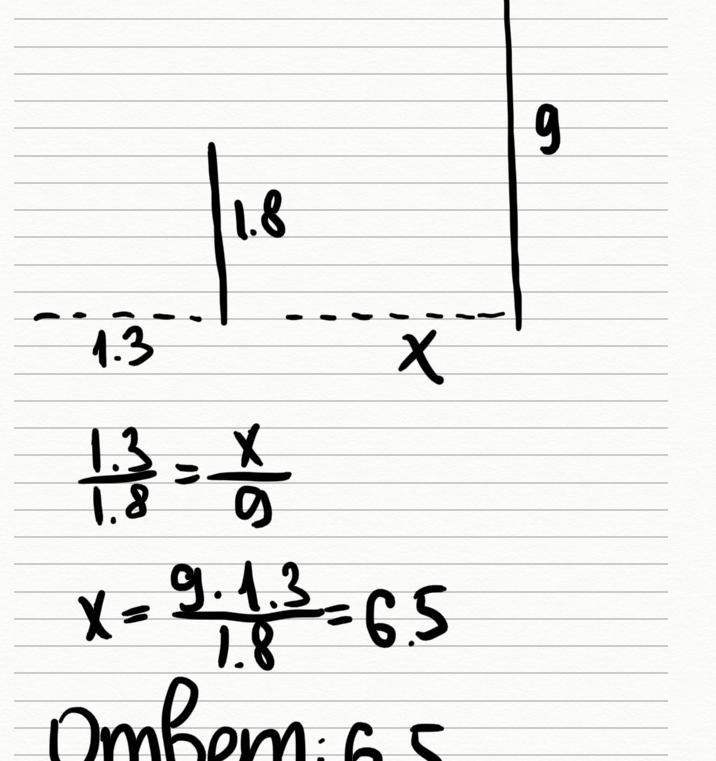 9
1.8
1.3
x
1.3/1.8 = x/9
x = 9·1.3/1.8 = 6.5
Ответ: 6.5